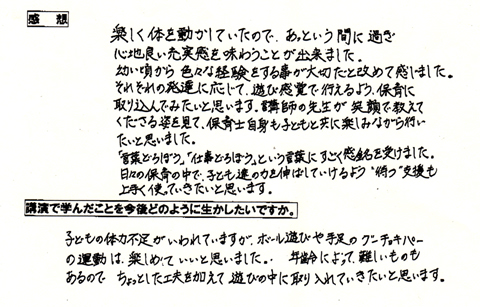 感 想
楽しく体を動かしていたので、あっという間に過ぎ
心地良い充実感を味わうことが出来ました。
幼い頃から色々な経験をする事が大切だと改めて感じました。
それぞれの発達に応じて、遊び感覚で行えるよう、保育に
取り込んでみたいと思います。講師の先生が笑顔で教えて
くださる姿を見て、保育士自身も子どもと共に楽しみながら行い
たいと思いました。
「言葉どろぼう」「仕事どろぼう」という言葉にすごく感銘を受けました。
日々の保育の中で、子ども達の力を伸ばしていけるよう"待つ"支援も
上手く使っていきたいと思います。
講演で学んだことを今後どのように生かしたいですか。
子どもの体力不足がいわれていますが、ボール遊びや手足のグーチョキパー
の運動は、楽しめていいと思いました。年齢によって、難しいものも
あるので ちょっとした工夫を加えて遊びの中に取り入れていきたいと思います。